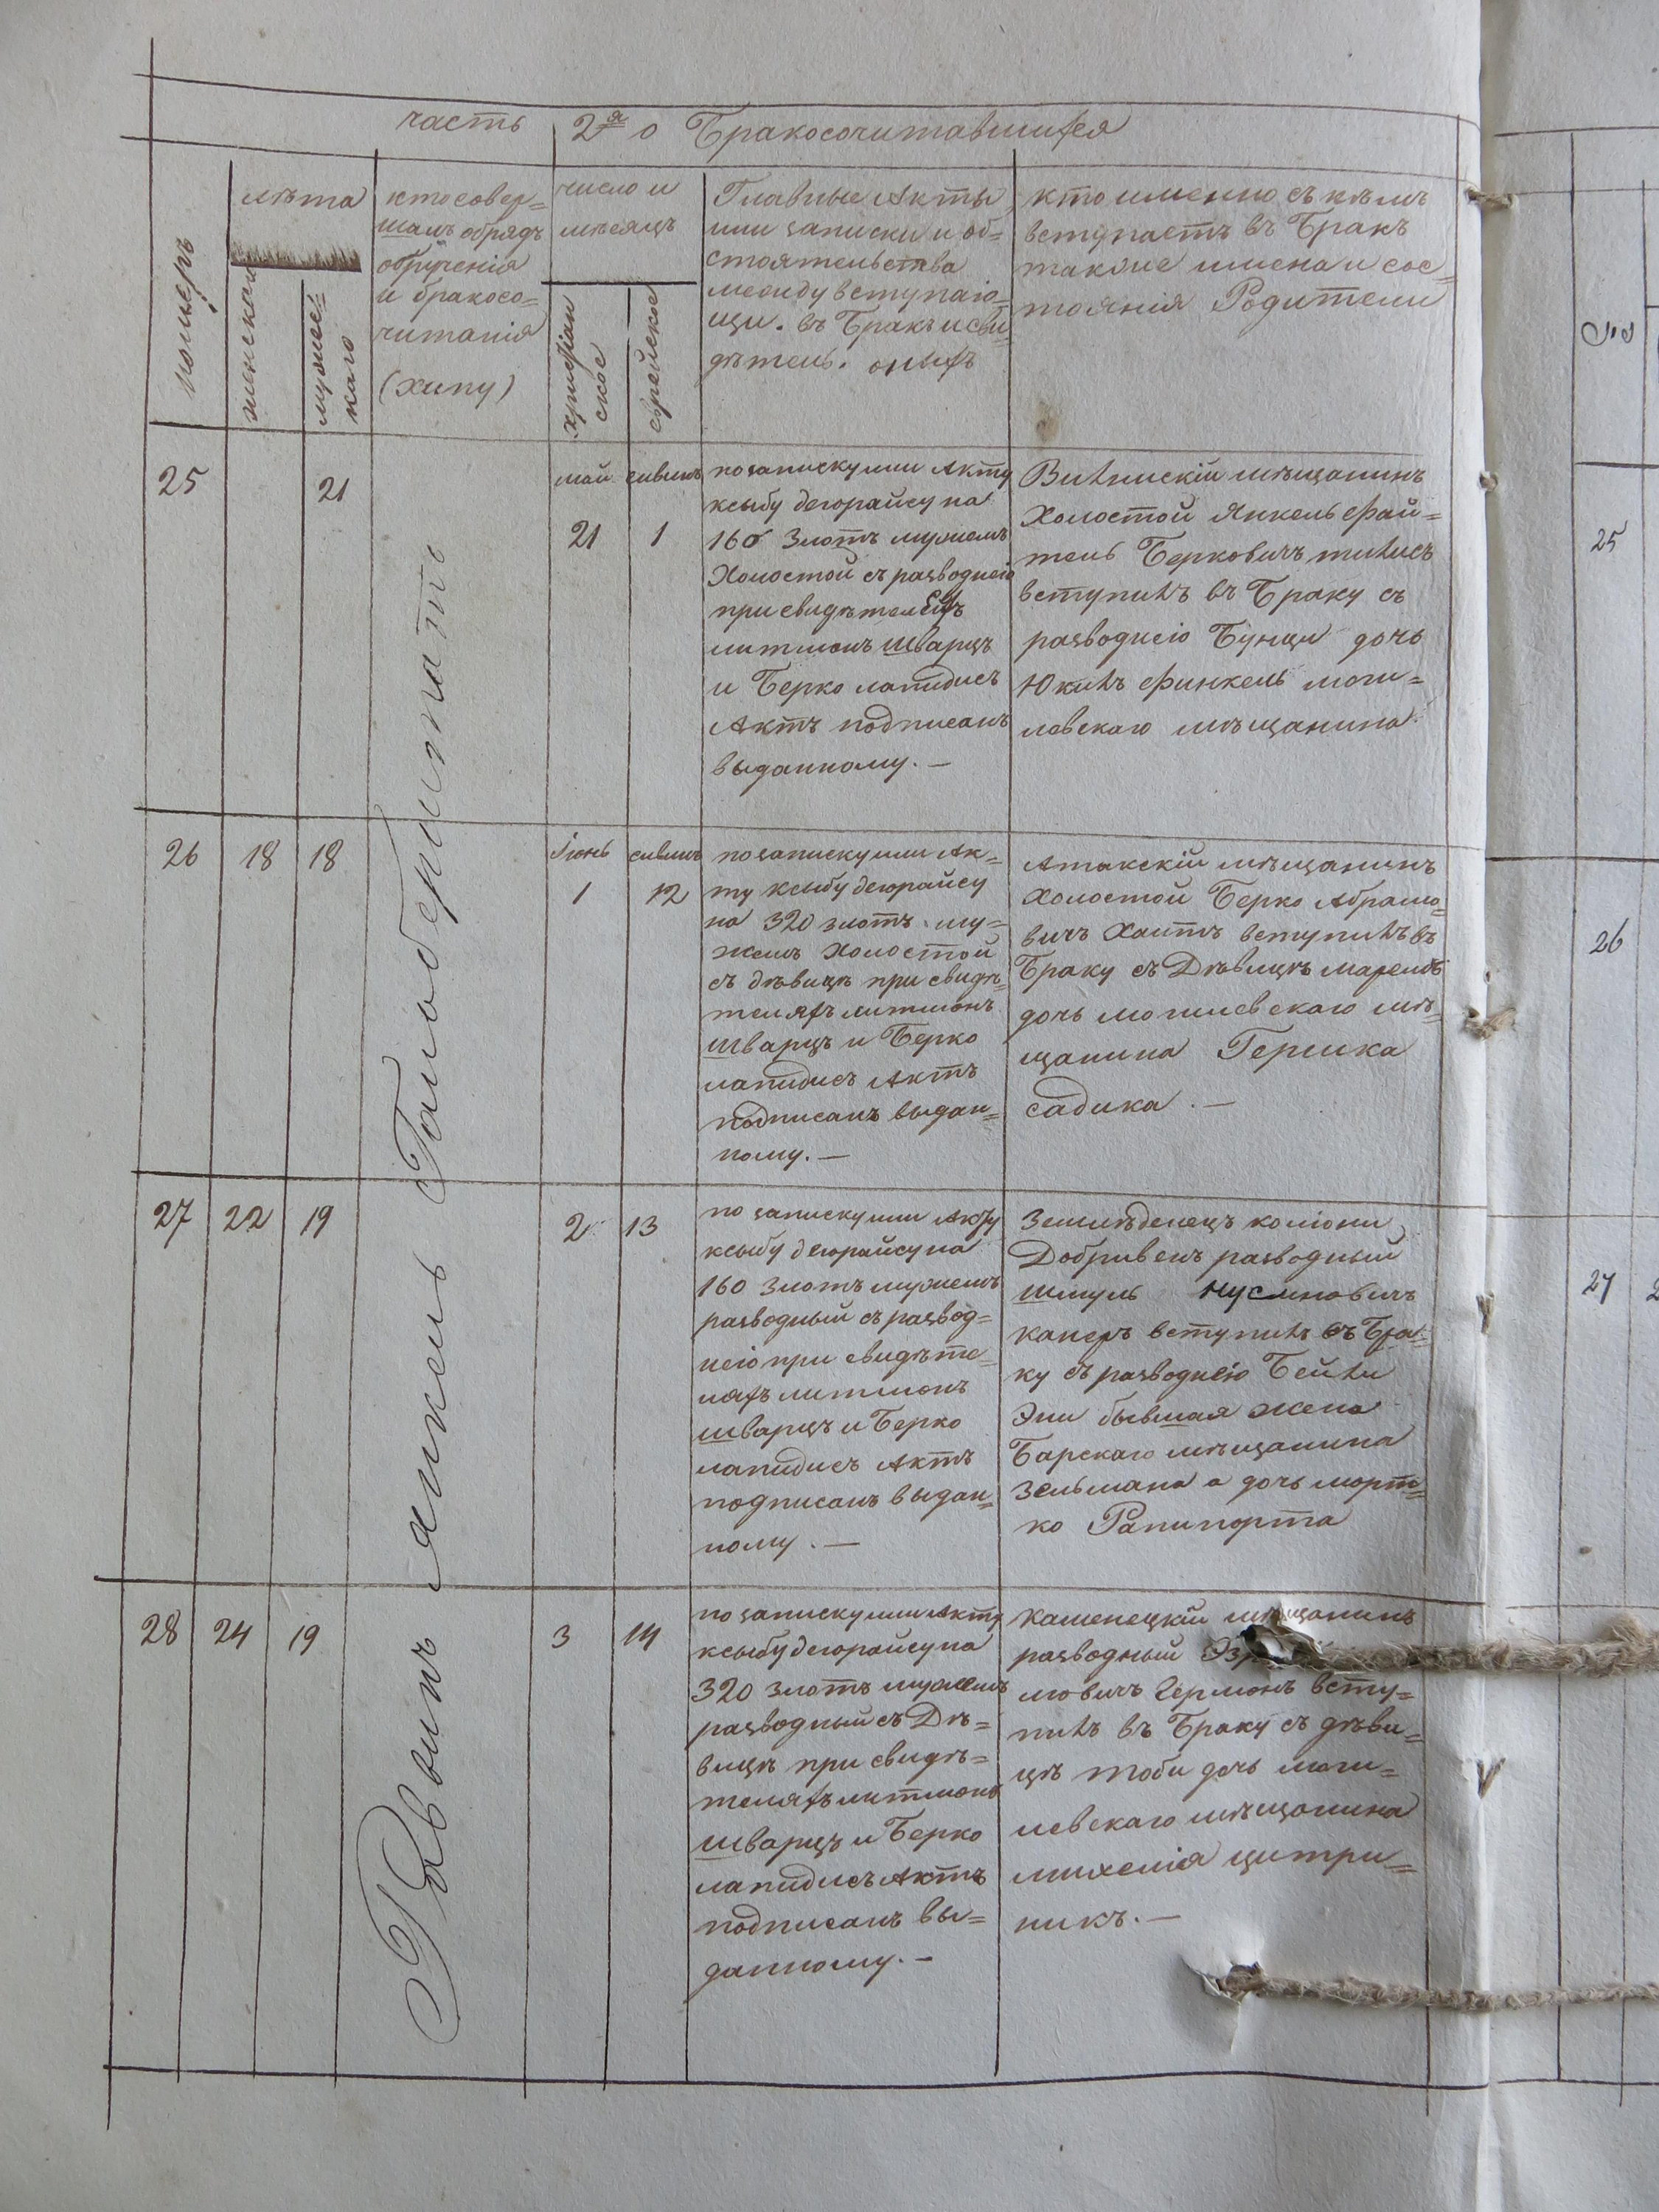 часть 2я о Бракосочитавшихся
номеръ
лѣта
женская
мужес=
каго
кто совер=
шалъ обрядъ
обрученія
и бракосо=
читанія
(хипу)
число и
мѣсяцъ
христіан
ское
еврейское
Главные Акты
или записки и об=
стоятельства
между вступаю=
щи. въ Бракъ и сви
дѣтель. оныхъ
кто именно съ кѣмъ
вступаетъ въ Бракъ
также имена и сос=
тоянія Родители
25
21
май
21
сивинъ
1
по запискуили Акту
ксыбу деюрайсу на
160 Злотъ мужемъ
Холостой съ разводнею
при свидѣтелехъ
литманъ шварцъ
и Берко лапидисъ
Актъ подписанъ
выданному. —
мѣщанинъ
Холостой Янкель Фай=
тель Берковичъ
вступилъ въ Браку съ
разводнею Бунци дочь
Финкель моги=
левскаго мѣщанина
26
18
18
Іюнь
1
сивинъ
12
по запискуили Ак=
ту ксыбу деюрайсу
на 320 злотъ му=
жемъ Холостой
съ дѣвицѣ при свидѣ=
теляхъ литманъ
шварцъ и Берко
лапидисъ Актъ
подписанъ выдан=
ному. —
Атакскій мѣщанинъ
Холостой Берко Абрамо=
вичъ Хаитъ вступилъ въ
Браку съ Дѣвицѣ
дочь могилевскаго мѣ=
щанина Гершка
садика. —
27
22
19
2
13
по запискуили Акту
ксыбу деюрайсу на
160 Злотъ мужемъ
разводный съ развод=
нею при свидѣте=
ляхъ литманъ
шварцъ и Берко
лапидисъ Актъ
подписанъ выдан=
ному. —
Земледелецъ колоніи
Добривенъ разводный
шмуль Нусиновичъ
канеръ вступилъ въ Бра=
ку съ разводнею Бейли
Эни бывшая жена
Барскаго мѣщанина
Зельмана а дочь морт=
ко Рапипорта
28
24
19
3
14
по запискуили Акту
ксыбу деюрайсу на
320 Злотъ мужемъ
разводный съ Дѣ=
вицѣ при свидѣ=
теляхъ литманъ
шварцъ и Берко
лапидисъ Актъ
подписанъ вы=
данному. —
Каменецкій мѣщанинъ
разводный
мовичъ Германъ всту=
пилъ въ Браку съ дѣви=
цѣ тоби дочь моги=
левскаго мѣщанина
михелія цитри=
никъ. —
Равинъ Янкель Гальберштатъ
25
26
27